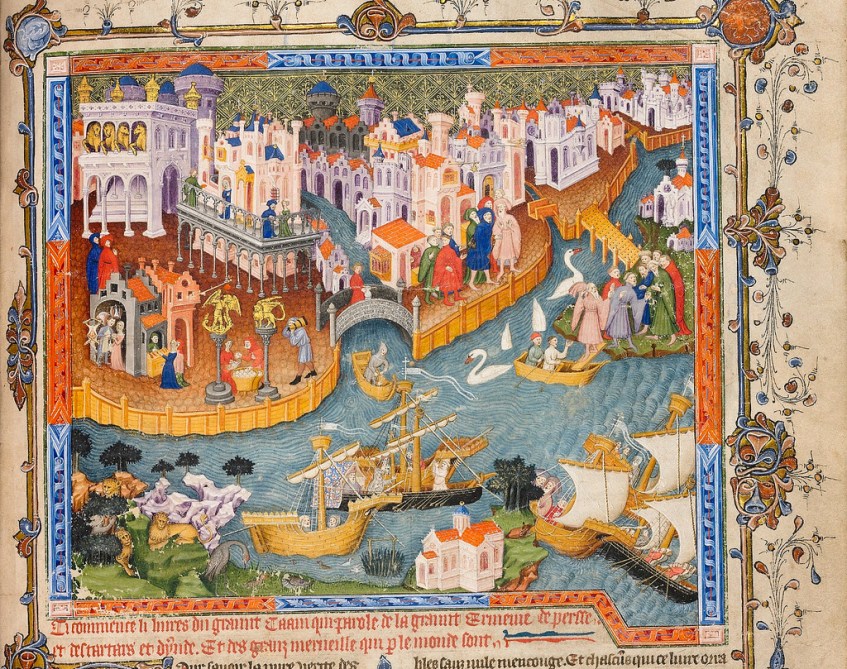 Ci commence li livres du graunt Caam qui parole de la graunt Ermenie de persse
et des tartars et dynde. Et des granz merueille qui p le monde sont
Pour sauoir la pure verite des
bles sanz nule mencouge. Et chascuns qui ce liure orra